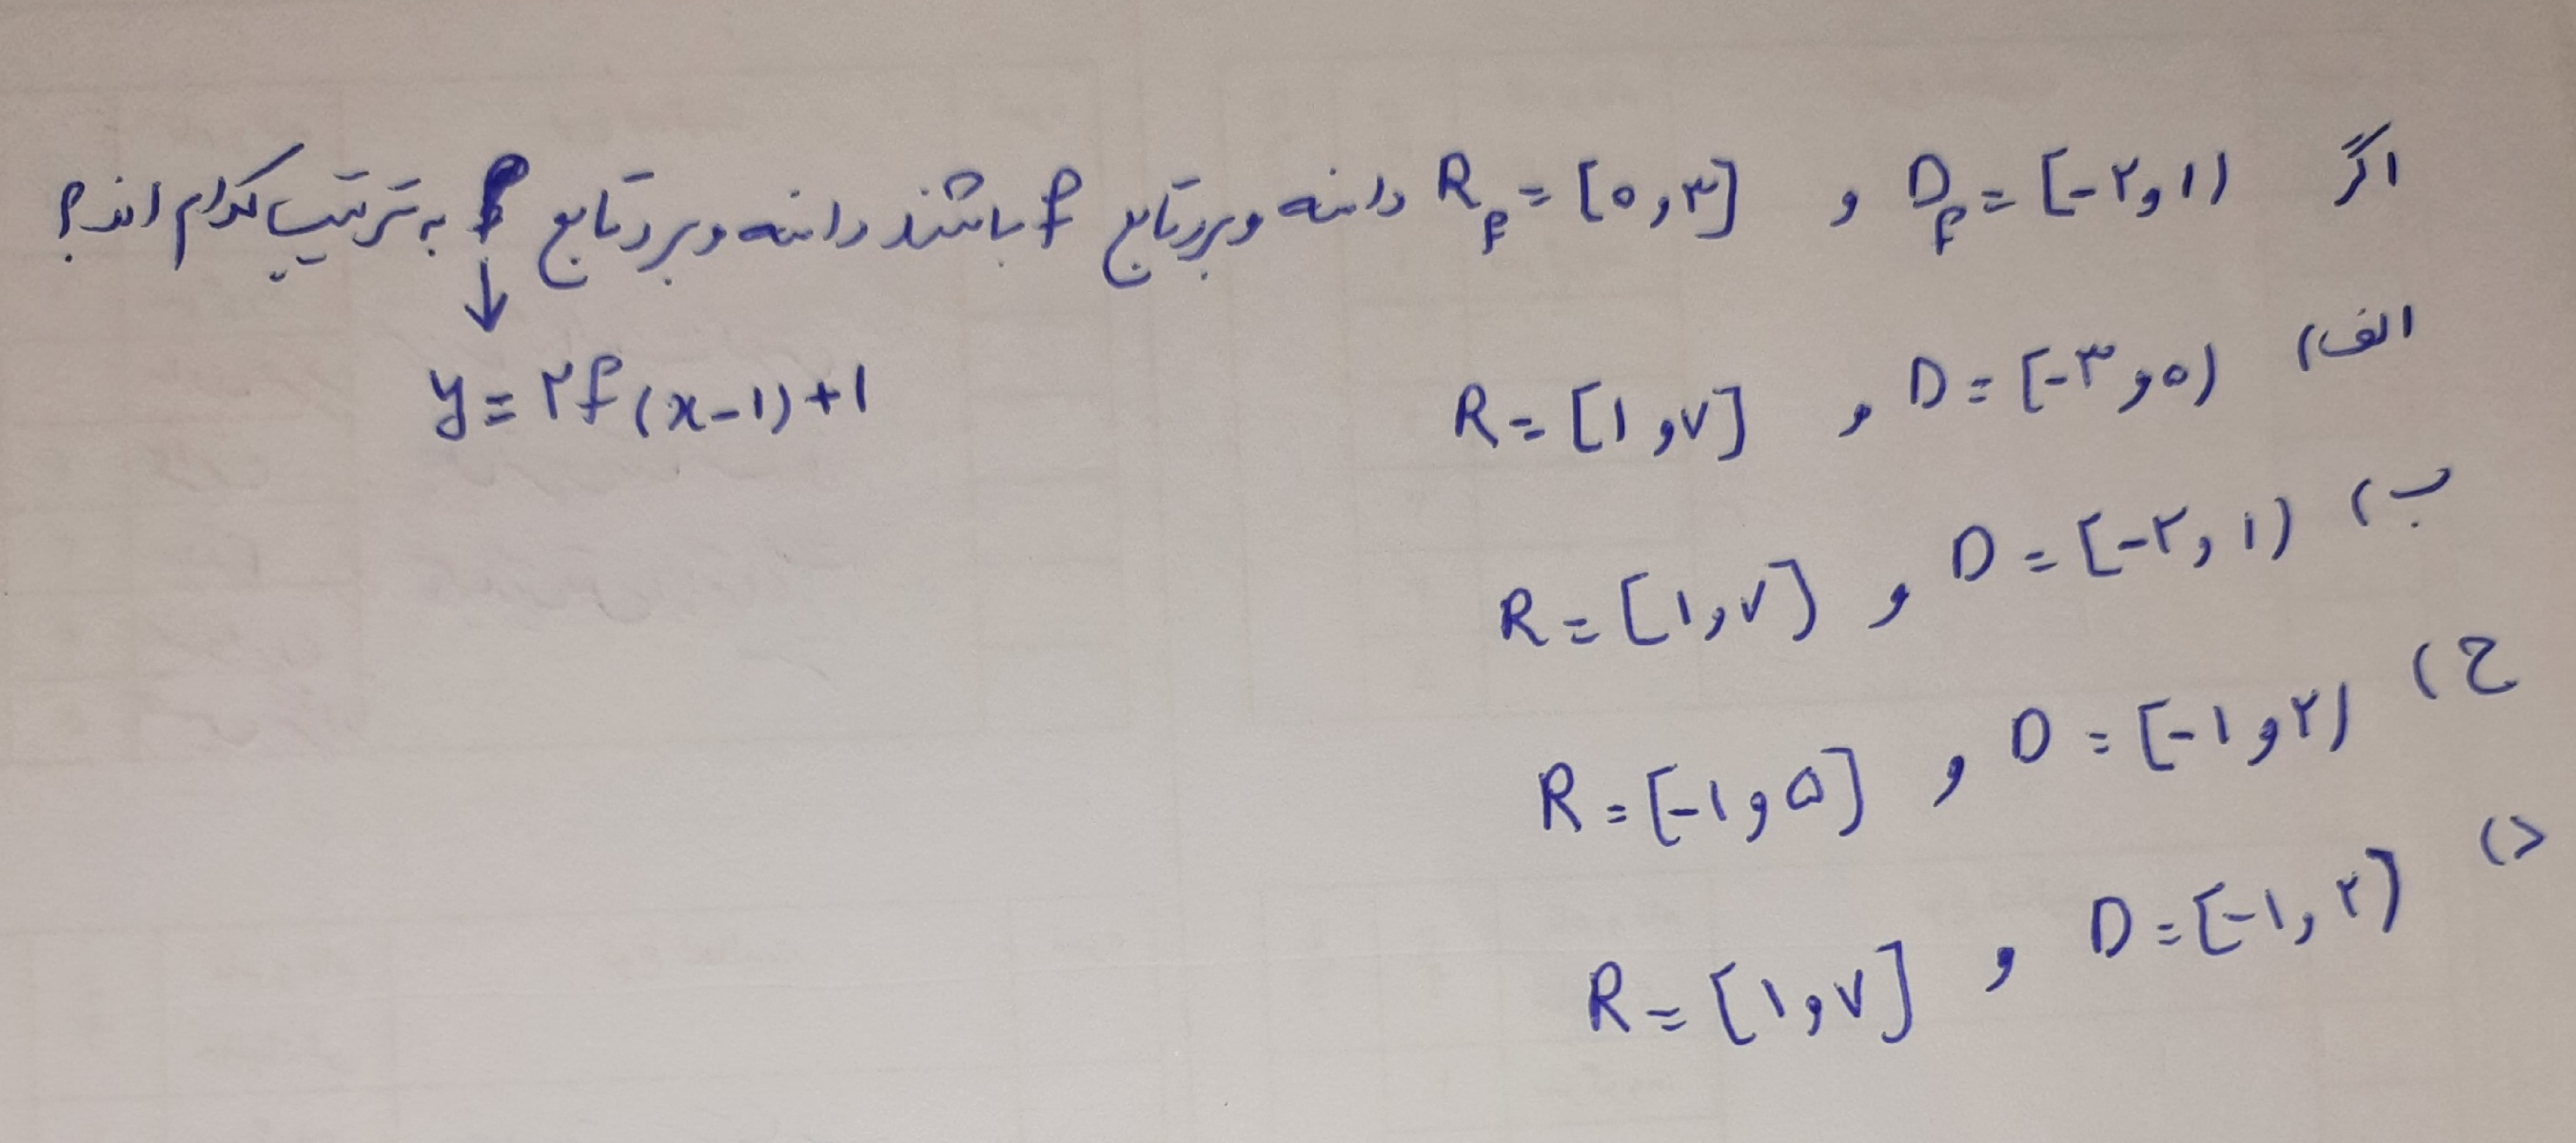 اگر D_f = [-۲و۱) و R_f = [۰و۳] دامنه و برد تابع f باشند دامنه و برد تابع به ترتیب کدام اند؟
↓
y = ۲f(x-۱)+۱
الف) D = [-۳و۰) و R = [۱و۷]
ب) D = [-۲و۱) و R = [۱و۷]
ج) D = [-۱و۲) و R = [-۱و۵]
د) D = [-۱و۲) و R = [۱و۷]